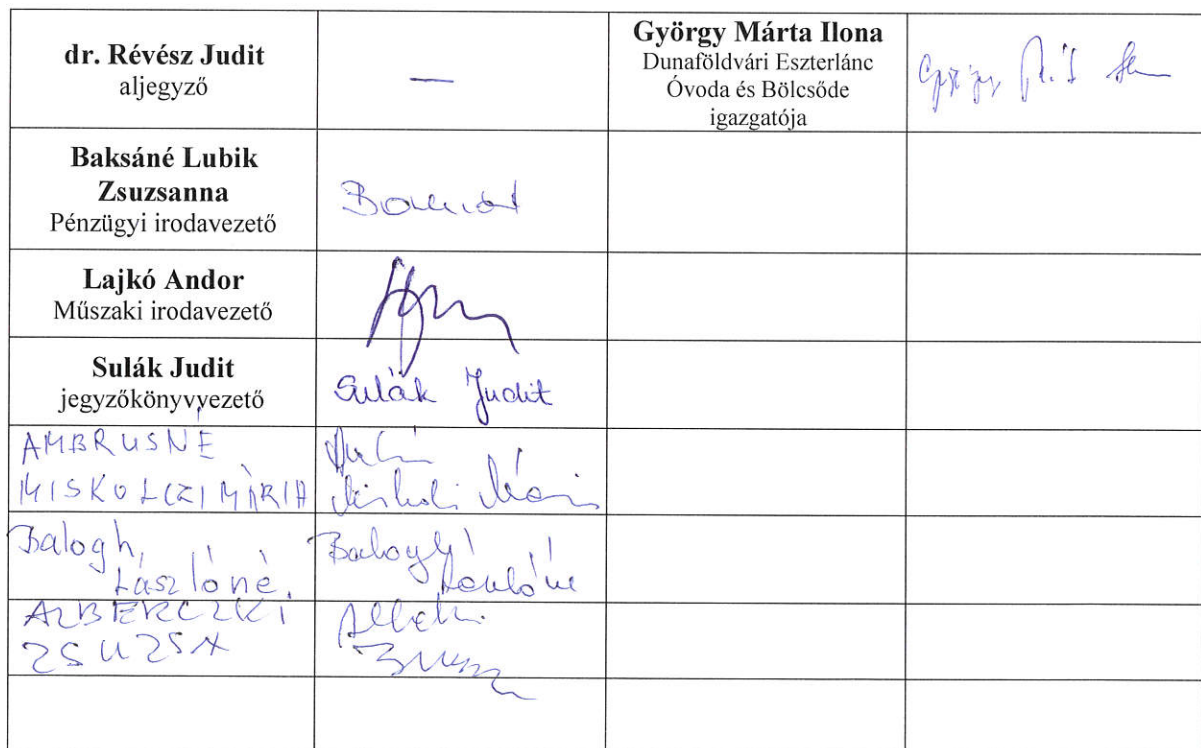 dr. Révész Judit
aljegyző
—
György Márta Ilona
Dunaföldvári Eszterlánc
Óvoda és Bölcsőde
igazgatója
György
Baksáné Lubik
Zsuzsanna
Pénzügyi irodavezető
Lajkó Andor
Műszaki irodavezető
Sulák Judit
jegyzőkönyvvezető
Sulák Judit
AMBRUSNÉ
MISKOLCZI MÁRIA
Balogh
Lászlóné
Baloghné
Lászlóné
ALBERCZKI
ZSUZSA